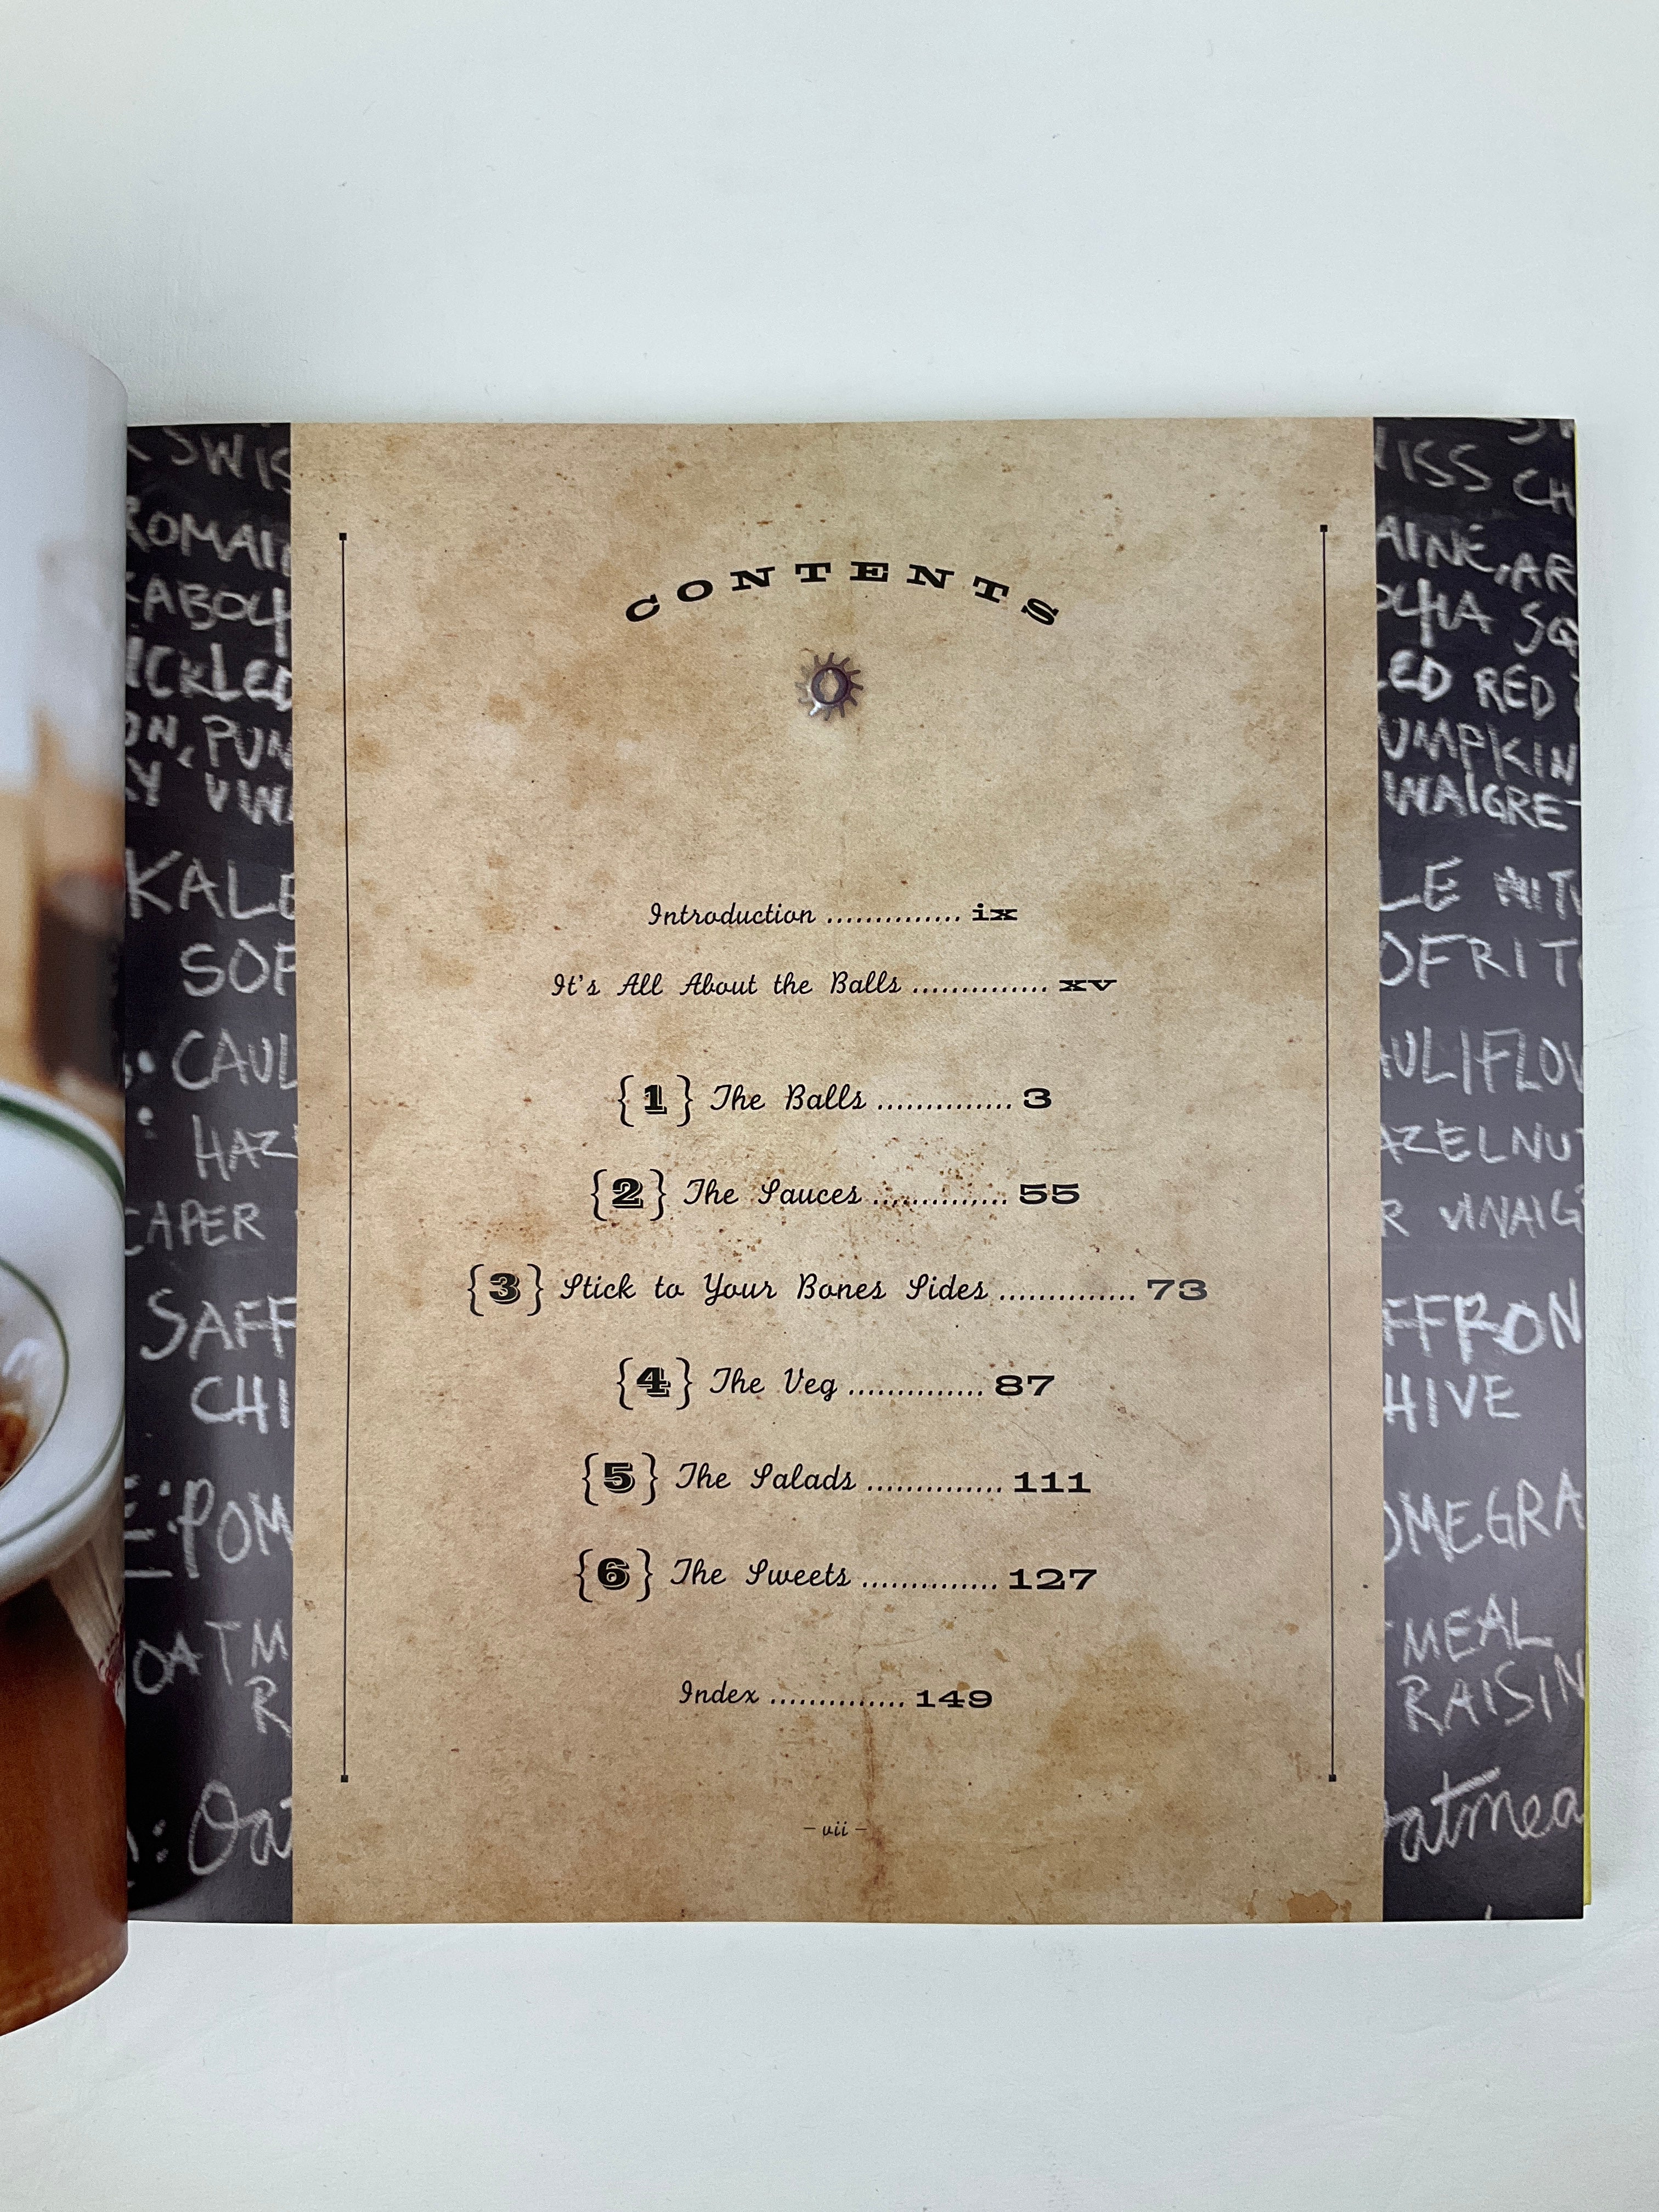 CONTENTS
Introduction .............. ix
It's All About the Balls .............. xv
{1} The Balls .............. 3
{2} The Sauces .............. 55
{3} Stick to Your Bones Sides .............. 73
{4} The Veg .............. 87
{5} The Salads .............. 111
{6} The Sweets .............. 127
Index .............. 149
– vii –
SWIS
ROMAI
KABOCH
ICKLED
ON, PUM
RY VINA
KALE
SOF
: CAUL
HAZ
CAPER
SAFF
CHI
E: POM
OATM
R
: Oat
ISS CH
AINE, AR
OCHA SQ
LED RED
UMPKIN
INAIGRET
LE WIT
OFRITO
AULIFLOW
AZELNUT
R VINAIG
FFRON
HIVE
OMEGRA
TMEAL
RAISIN
atmea